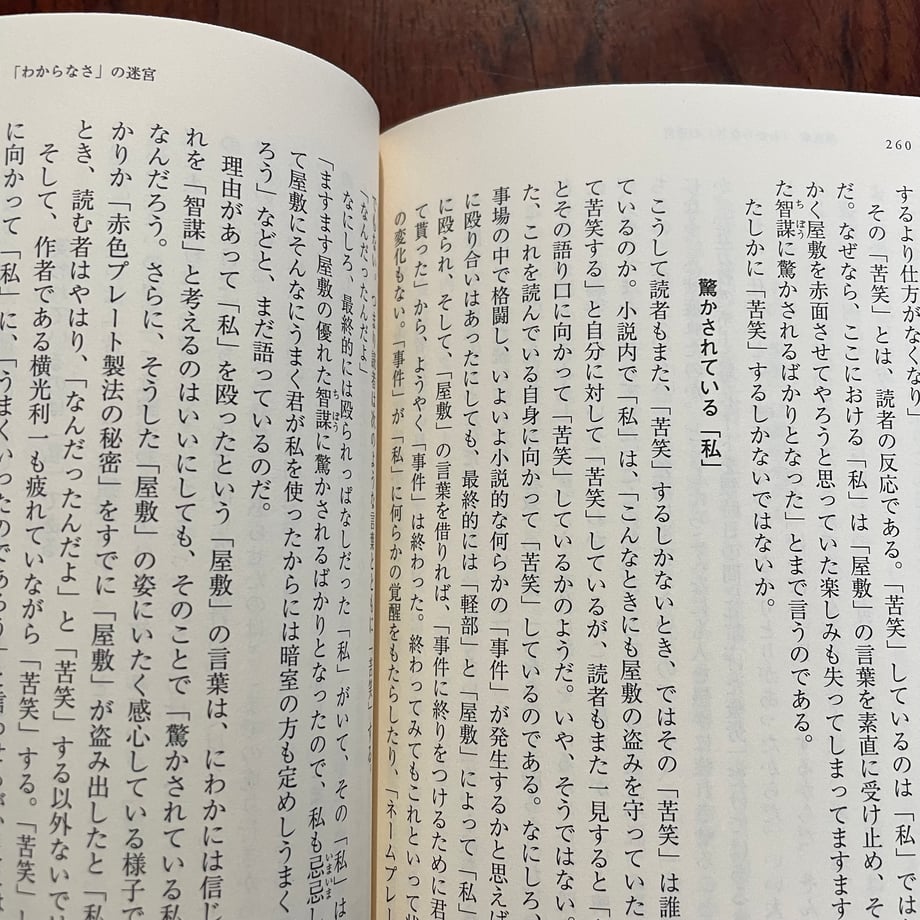 260
するより仕方がなくなり」
その「苦笑」とは、読者の反応である。「苦笑」しているのは「私」では
だ。なぜなら、ここにおける「私」は「屋敷」の言葉を素直に受け止め、そ
かく屋敷を赤面させてやろうと思っていた楽しみも失ってしまってますます
た智謀に驚かされるばかりとなった」とまで言うのである。
たしかに「苦笑」するしかないではないか。
驚かされている「私」
こうして読者もまた、「苦笑」するしかないとき、ではその「苦笑」は誰
ているのか。小説内で「私」は、「こんなときにも屋敷の盗みを守っていた
て苦笑する」と自分に対して「苦笑」しているが、読者もまた一見すると、
とその語り口に向かって「苦笑」しているかのようだ。いや、そうではない。
た、これを読んでいる自身に向かって「苦笑」しているのである。なにしろ、
事場の中で格闘し、いよいよ小説的な何らかの「事件」が発生するかと思えば
に殴り合いはあったにしても、最終的には「軽部」と「屋敷」によって「私」
に殴られ、そして、「屋敷」の言葉を借りれば、「事件に終りをつけるために君
て貰った」から、ようやく「事件」は終わった。終わってみてもこれといって
の変化もない。「事件」が「私」に何らかの覚醒をもたらしたり、「ネームプレー
「わからなさ」の迷宮
「なんだったんだよ」
なにしろ、最終的には殴られっぱなしだった「私」がいて、その「私」は
「ますます屋敷の優れた智謀に驚かされるばかりとなったので、私も忌忌し
て屋敷にそんなにうまく君が私を使ったからには暗室の方も定めしうまく
ろう」などと、まだ語っているのだ。
理由があって「私」を殴ったという「屋敷」の言葉は、にわかには信じ
れを「智謀」と考えるのはいいにしても、そのことで「驚かされている私
なんだろう。さらに、そうした「屋敷」の姿にいたく感心している様子で
かりか「赤色プレート製法の秘密」をすでに「屋敷」が盗み出したと「私
とき、読む者はやはり、「なんだったんだよ」と「苦笑」する以外ないで
そして、作者である横光利一も疲れていながら「苦笑」する。「苦笑」し
に向かって「私」に、「うまくいったのであろう」と言わせる